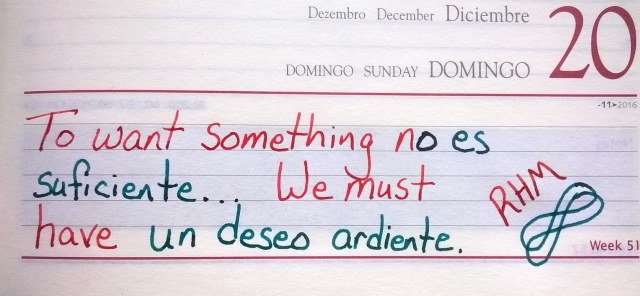 Dezembro December Diciembre 20
DOMINGO SUNDAY DOMINGO
-11➤2016
To want something no es
suficiente... We must
have un deseo ardiente.
RHM
Week 51